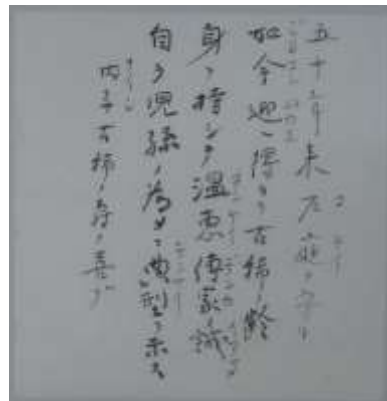 五十年来戸庭ヲ守リ
如今迎ヘ得タリ古稀ノ齢
身ニ持シテ温恵傳家ノ誡
自ラ児孫ノ為メニ典型ヲ示ス
内子古稀ノ寿ヲ喜ブ